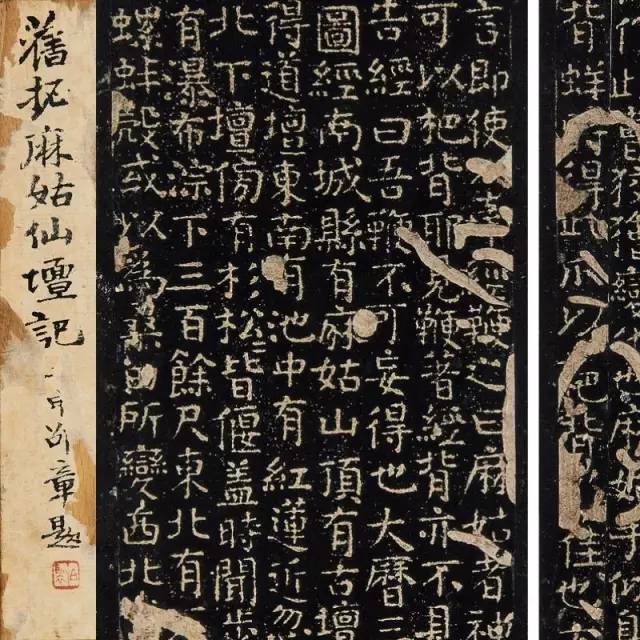 變化也麻姑手似鳥
背蛘時得此爪以杷背乃佳也
言即使人牽經鞭之曰麻姑者神
可以杷背耶見鞭著經背亦不見
告經曰吾鞭不可妄得也大曆三
圖經南城縣有麻姑山頂有古壇
得道壇東南有池中有紅蓮近忽
北下壇傍有杉松皆偃蓋時聞步
有暴布淙下三百餘尺東北有
螺蚌殼或以為桑田所變西北
舊拓麻姑仙壇記
章題